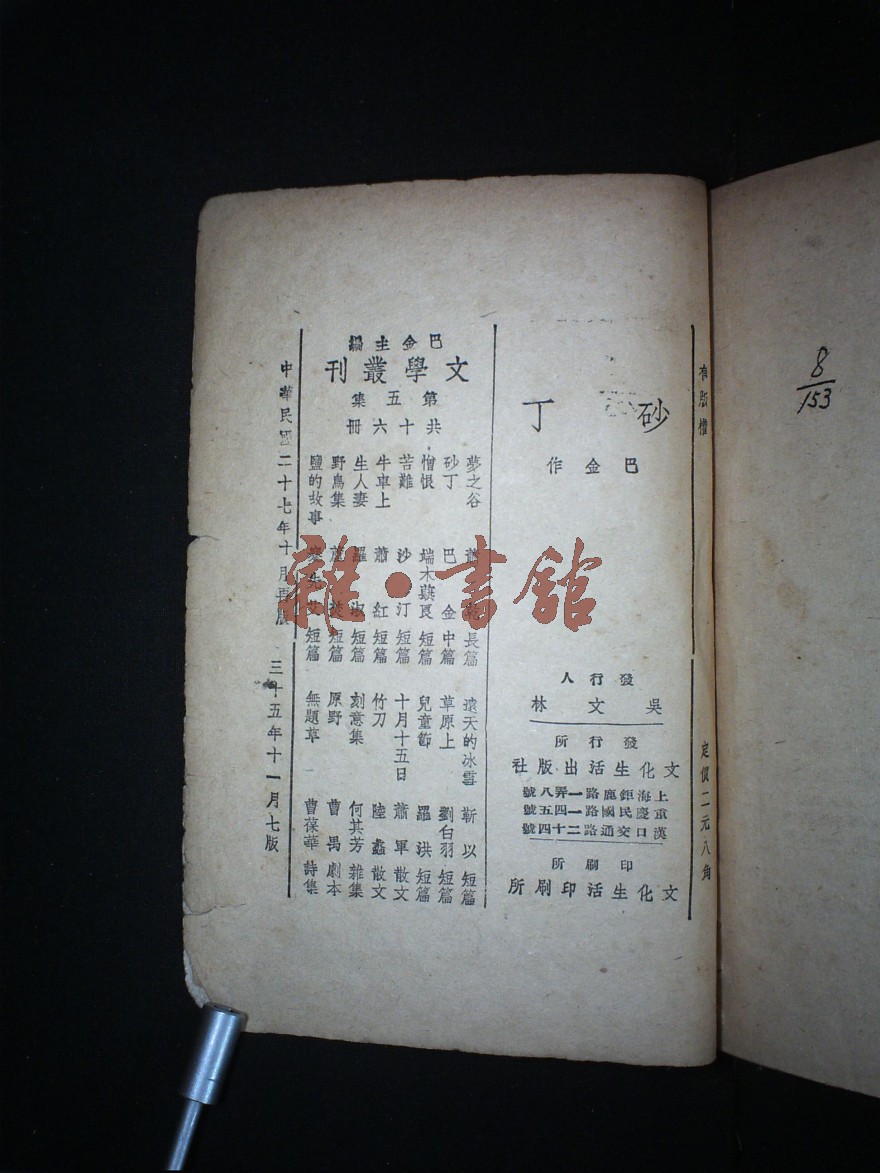 有版權
定價二元八角
砂丁
巴金作
發行人
吳文林
發行所
文化生活出版社
上海鉅鹿路一弄八號
重慶民國路一四五號
漢口交通路二十四號
印刷所
文化生活印刷所
巴金主編
文學叢刊
第五集
共十六冊
夢之谷 蕭乾 長篇
砂丁 巴金 中篇
憎恨 端木蕻良 短篇
苦難 沙汀 短篇
牛車上 蕭紅 短篇
生人妻 羅淑 短篇
野鳥集 蘆焚 短篇
鹽的故事 蹇先艾 短篇
遠天的冰雪 靳以 短篇
草原上 劉白羽 短篇
兒童節 羅洪 短篇
十月十五日 蕭軍 散文
竹刀 陸蠡 散文
刻意集 何其芳 雜集
原野 曹禺 劇本
無題草 曹葆華 詩集
中華民國二十七年十月再版
三十五年十一月七版
8/153
雜·書館